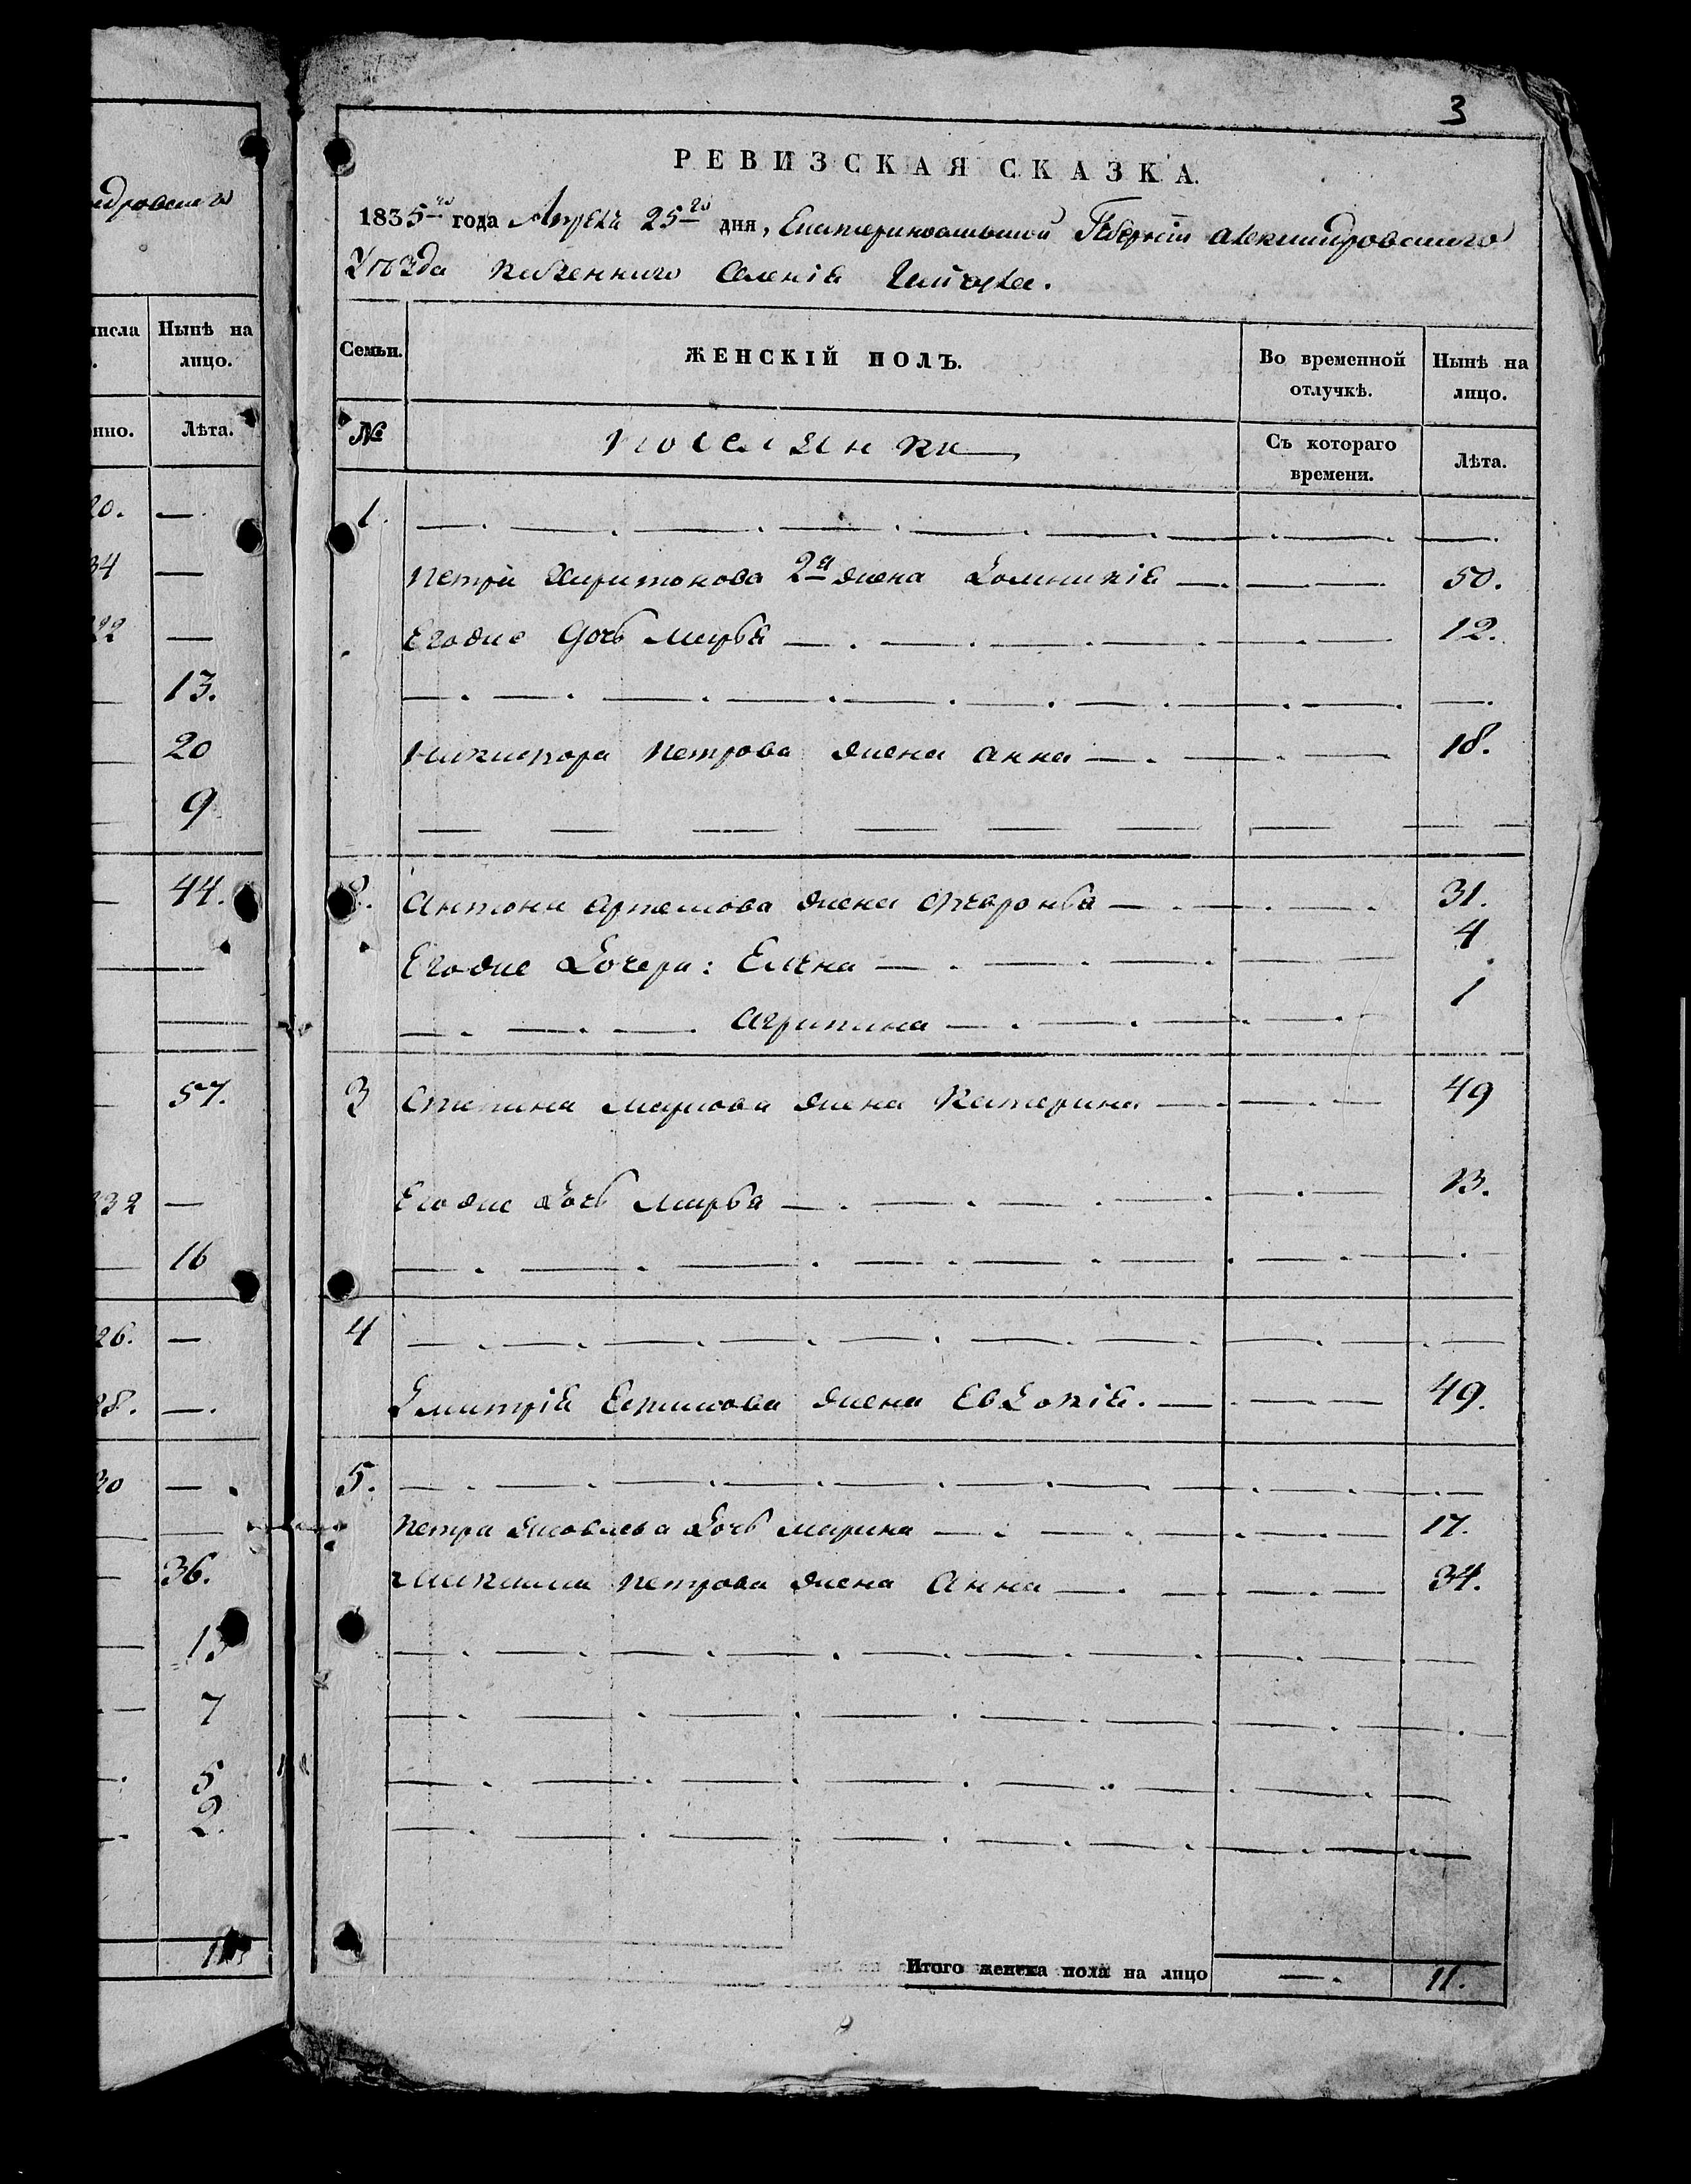 3
РЕВИЗСКАЯ СКАЗКА.
1835го года Апреля 25го дня, Екатеринославской Губернии Александровского
Уезда казенного селенія Гайчула.
Семьи.
ЖЕНСКІЙ ПОЛЪ.
Во временной отлучкѣ.
Нынѣ на лицо.
№
поселянки
Съ котораго времени.
Лѣта.
1.
Петра Харитонова 2я жена Домникія 50.
Егоже дочь Марья 12.
Никифора Петрова жена Анна 18.
2. Антона Артемова жена Февронья 31.
Егоже Дочери: Елена 4
Агрипина 1
3 Степана Маркова жена Катерина 49
Егоже дочь Марья 13.
4
Дмитрія Ефимова жена Евдокія. 49.
5.
Петра Яковлева дочь Марина 17.
Максима Петрова жена Анна 34.
Итого женска пола на лицо 11.
едровского
числа
Нынѣ на лицо.
нно.
Лѣта.
20.
34
22
13.
20
9
44.
57.
32
16
26.
28.
30
36.
7
5
2.